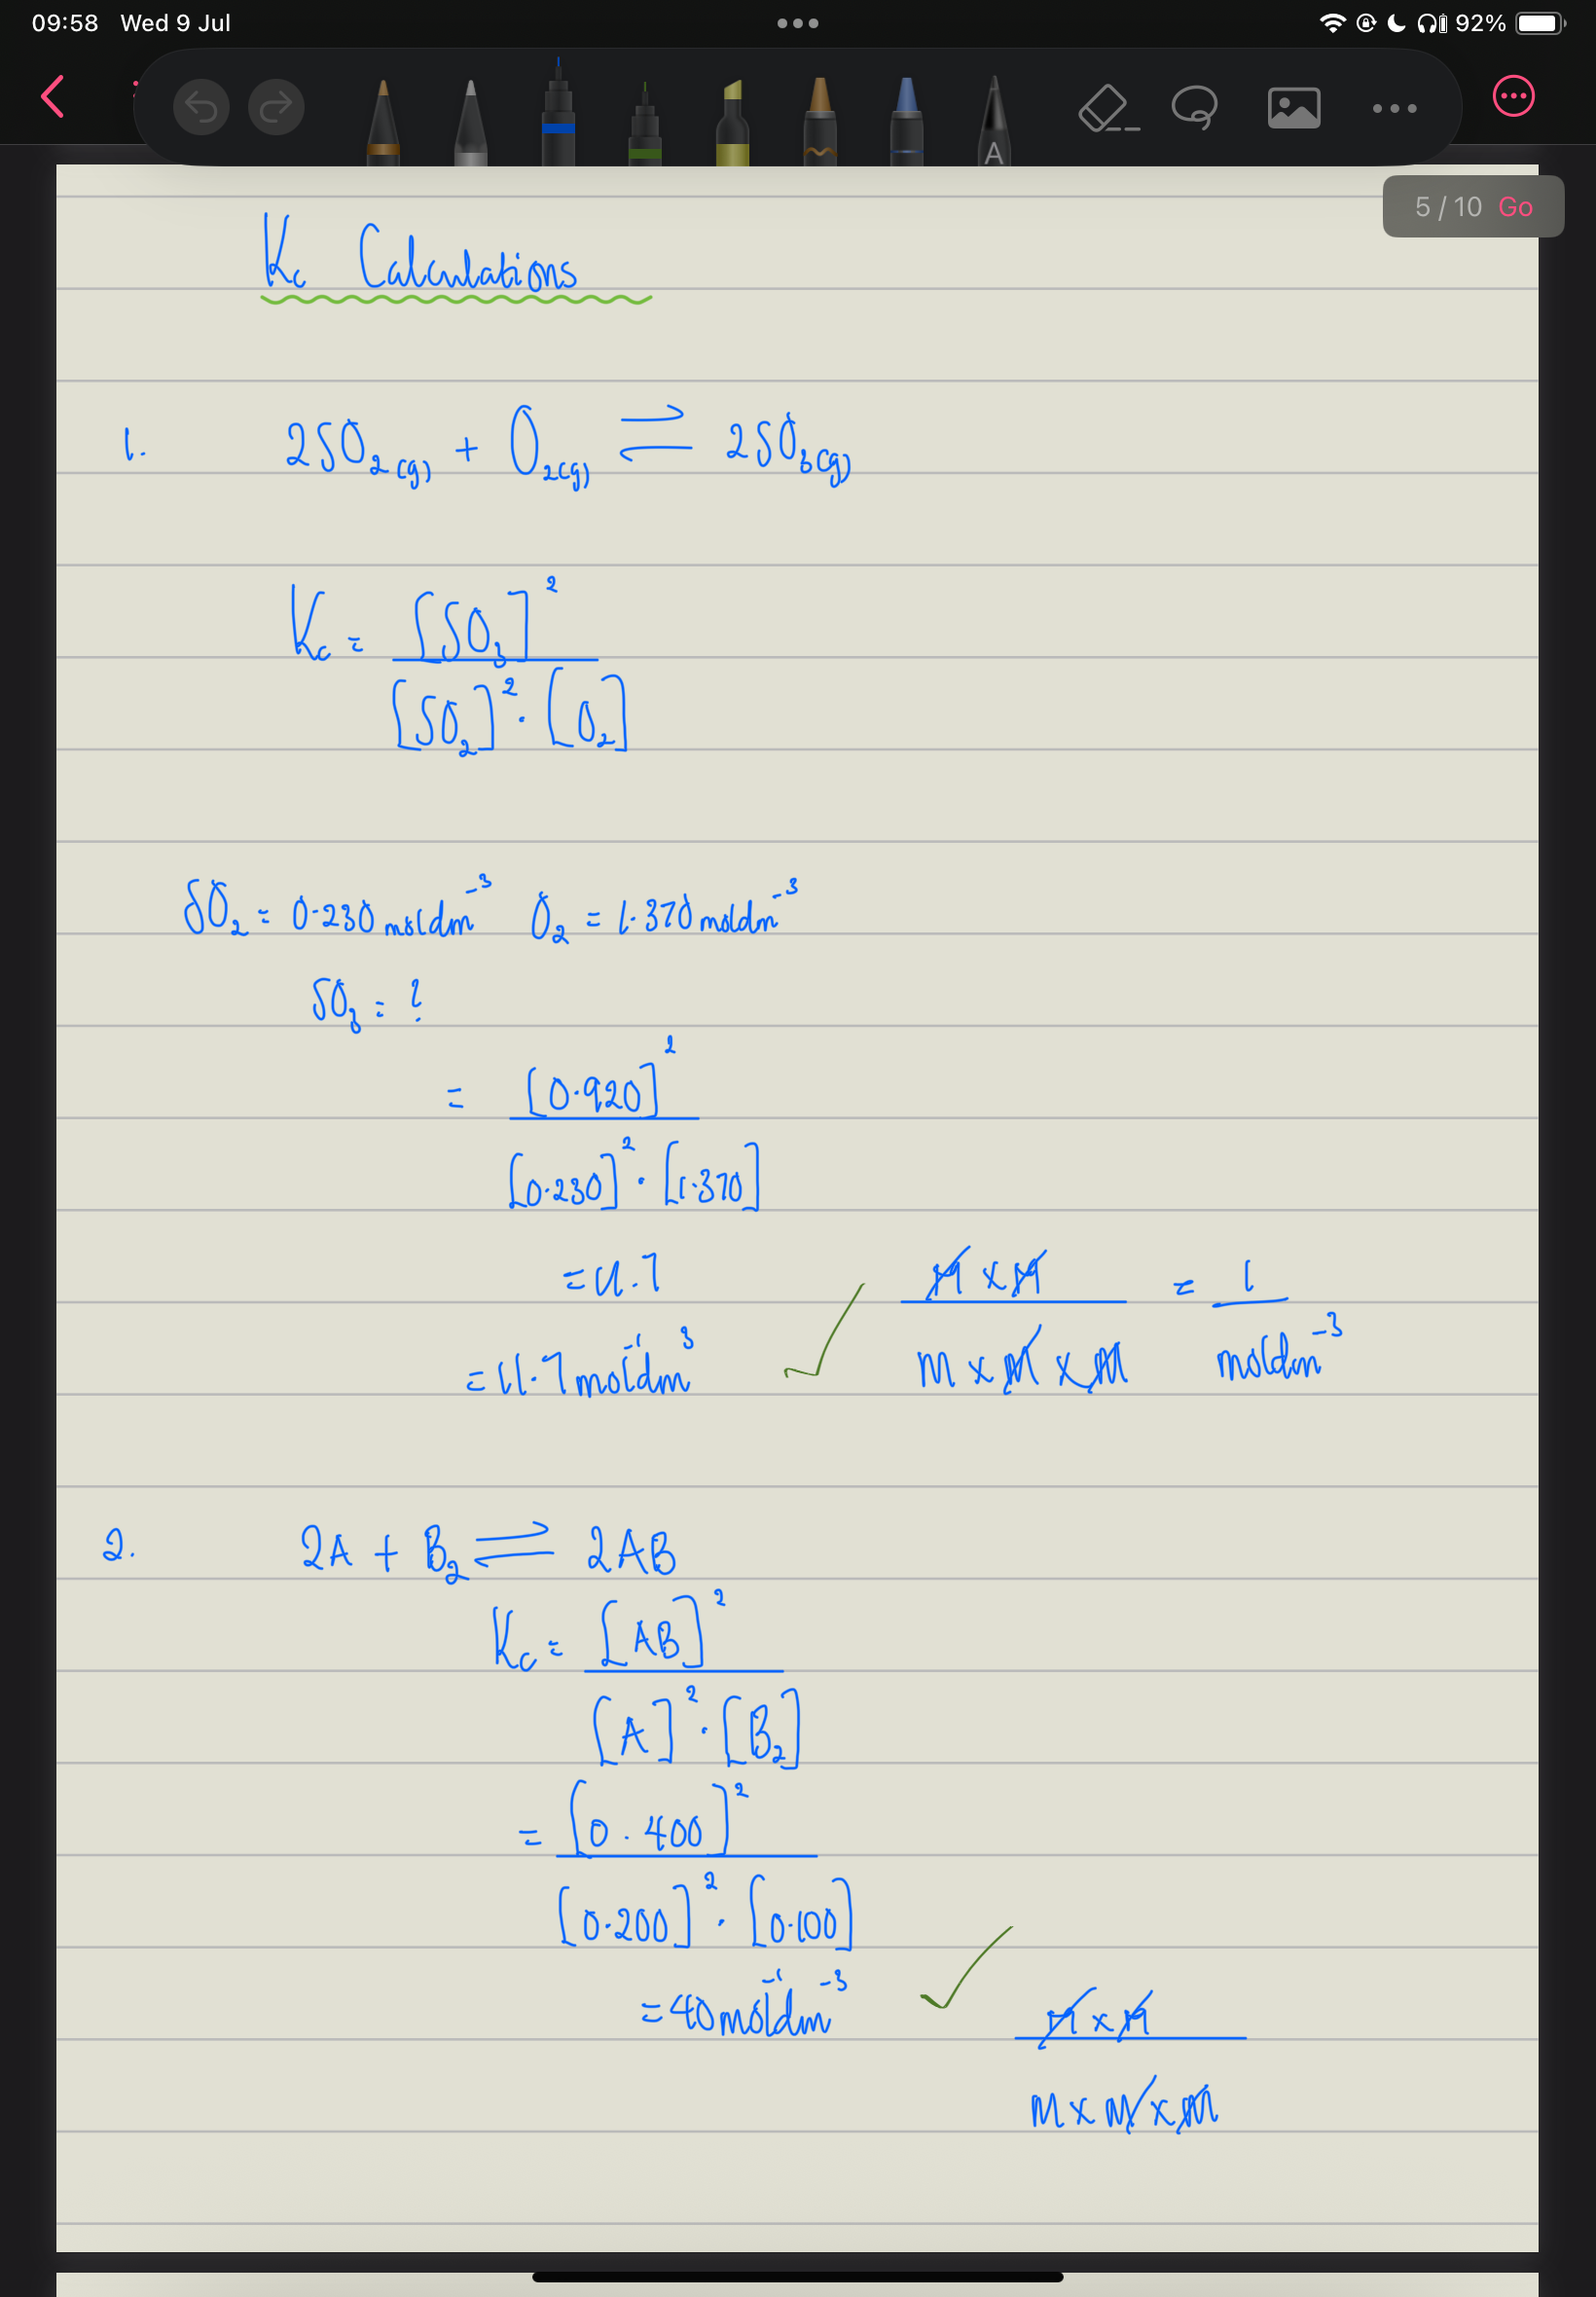 09:58 Wed 9 Jul 92%
A
5 / 10 Go
Kc Calculations
1. 2SO₂(g) + O₂(g) ⇌ 2SO₃(g)
Kc = [SO₃]²
[SO₂]² · [O₂]
SO₂ = 0.230 moldm⁻³ O₂ = 1.370 moldm⁻³
SO₃ = ?
= [0.920]²
[0.230]² · [1.370]
= 11.7
= 11.7 mol⁻¹dm³
M x M = 1
M x M x M moldm⁻³
2. 2A + B₂ ⇌ 2AB
Kc = [AB]²
[A]² · [B₂]
= [0.400]²
[0.200]² · [0.100]
= 40 mol⁻¹dm⁻³
M x M
M x M x M